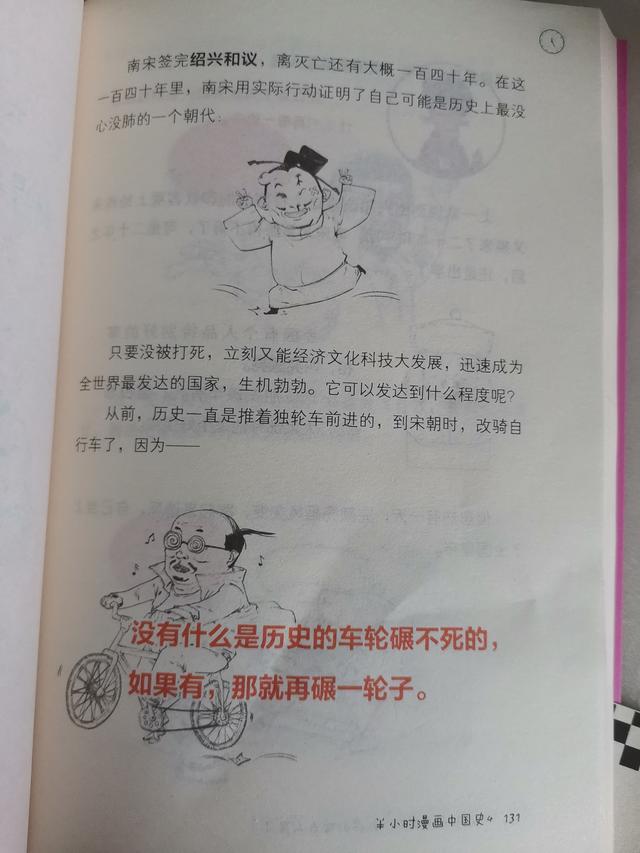 南宋签完绍兴和议，离灭亡还有大概一百四十年。在这
一百四十年里，南宋用实际行动证明了自己可能是历史上最没
心没肺的一个朝代：
只要没被打死，立刻又能经济文化科技大发展，迅速成为
全世界最发达的国家，生机勃勃。它可以发达到什么程度呢？
从前，历史一直是推着独轮车前进的，到宋朝时，改骑自
行车了，因为——
没有什么是历史的车轮碾不死的，
如果有，那就再碾一轮子。
半小时漫画中国史4 131